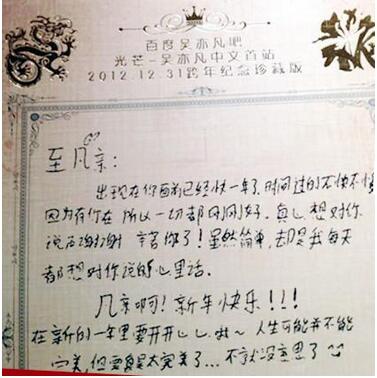 百度吴亦凡吧
光芒-吴亦凡中文首站
2012.12.31跨年纪念珍藏版
至凡亲:
出现在你面前已经快一年了 时间过的不快不慢
因为有你在 所以一切都刚刚好。真心想对你
说声谢谢 辛苦你了!虽然简单,却是我每天
都想对你说的心里话。
凡亲啊!新年快乐!!!
在新的一年里要开开心心哦~ 人生可能并不能
完美,但要是太完美了...不就没意思了